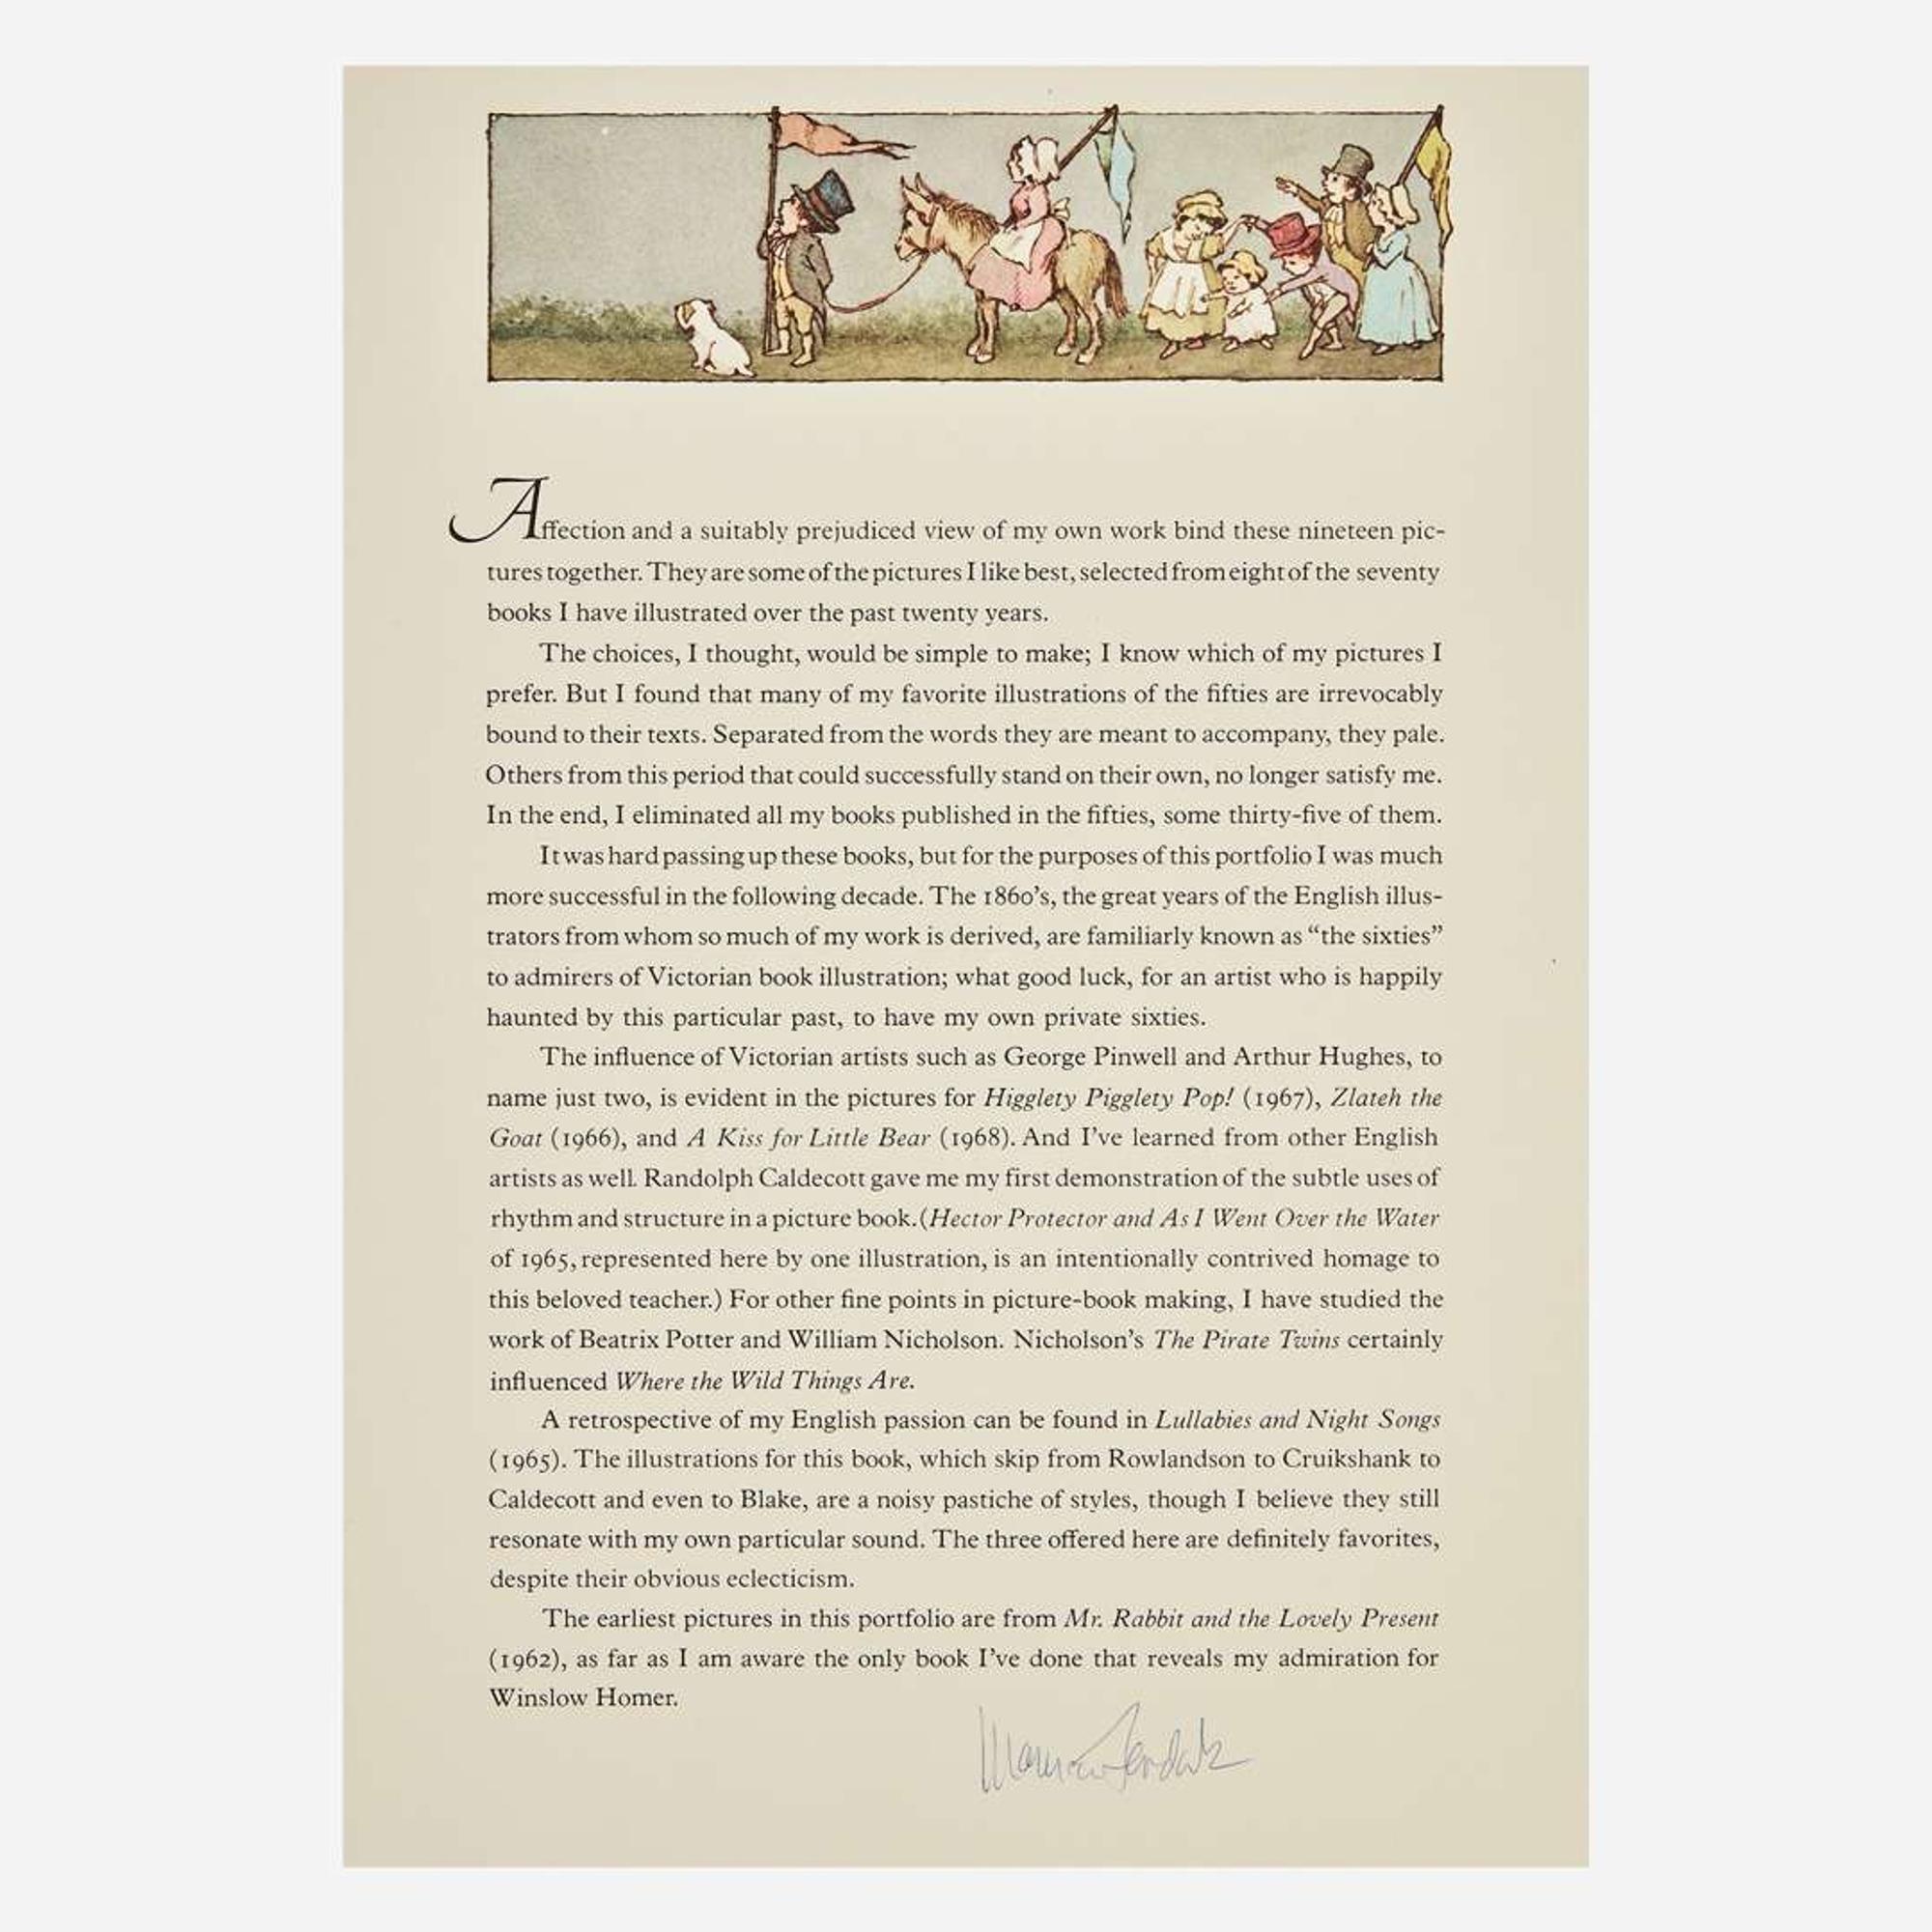 Affection and a suitably prejudiced view of my own work bind these nineteen pic-
tures together. They are some of the pictures I like best, selected from eight of the seventy
books I have illustrated over the past twenty years.
The choices, I thought, would be simple to make; I know which of my pictures I
prefer. But I found that many of my favorite illustrations of the fifties are irrevocably
bound to their texts. Separated from the words they are meant to accompany, they pale.
Others from this period that could successfully stand on their own, no longer satisfy me.
In the end, I eliminated all my books published in the fifties, some thirty-five of them.
It was hard passing up these books, but for the purposes of this portfolio I was much
more successful in the following decade. The 1860's, the great years of the English illus-
trators from whom so much of my work is derived, are familiarly known as “the sixties”
to admirers of Victorian book illustration; what good luck, for an artist who is happily
haunted by this particular past, to have my own private sixties.
The influence of Victorian artists such as George Pinwell and Arthur Hughes, to
name just two, is evident in the pictures for Higglety Pigglety Pop! (1967), Zlateh the
Goat (1966), and A Kiss for Little Bear (1968). And I've learned from other English
artists as well. Randolph Caldecott gave me my first demonstration of the subtle uses of
rhythm and structure in a picture book. (Hector Protector and As I Went Over the Water
of 1965, represented here by one illustration, is an intentionally contrived homage to
this beloved teacher.) For other fine points in picture-book making, I have studied the
work of Beatrix Potter and William Nicholson. Nicholson's The Pirate Twins certainly
influenced Where the Wild Things Are.
A retrospective of my English passion can be found in Lullabies and Night Songs
(1965). The illustrations for this book, which skip from Rowlandson to Cruikshank to
Caldecott and even to Blake, are a noisy pastiche of styles, though I believe they still
resonate with my own particular sound. The three offered here are definitely favorites,
despite their obvious eclecticism.
The earliest pictures in this portfolio are from Mr. Rabbit and the Lovely Present
(1962), as far as I am aware the only book I've done that reveals my admiration for
Winslow Homer.
Maurice Sendak